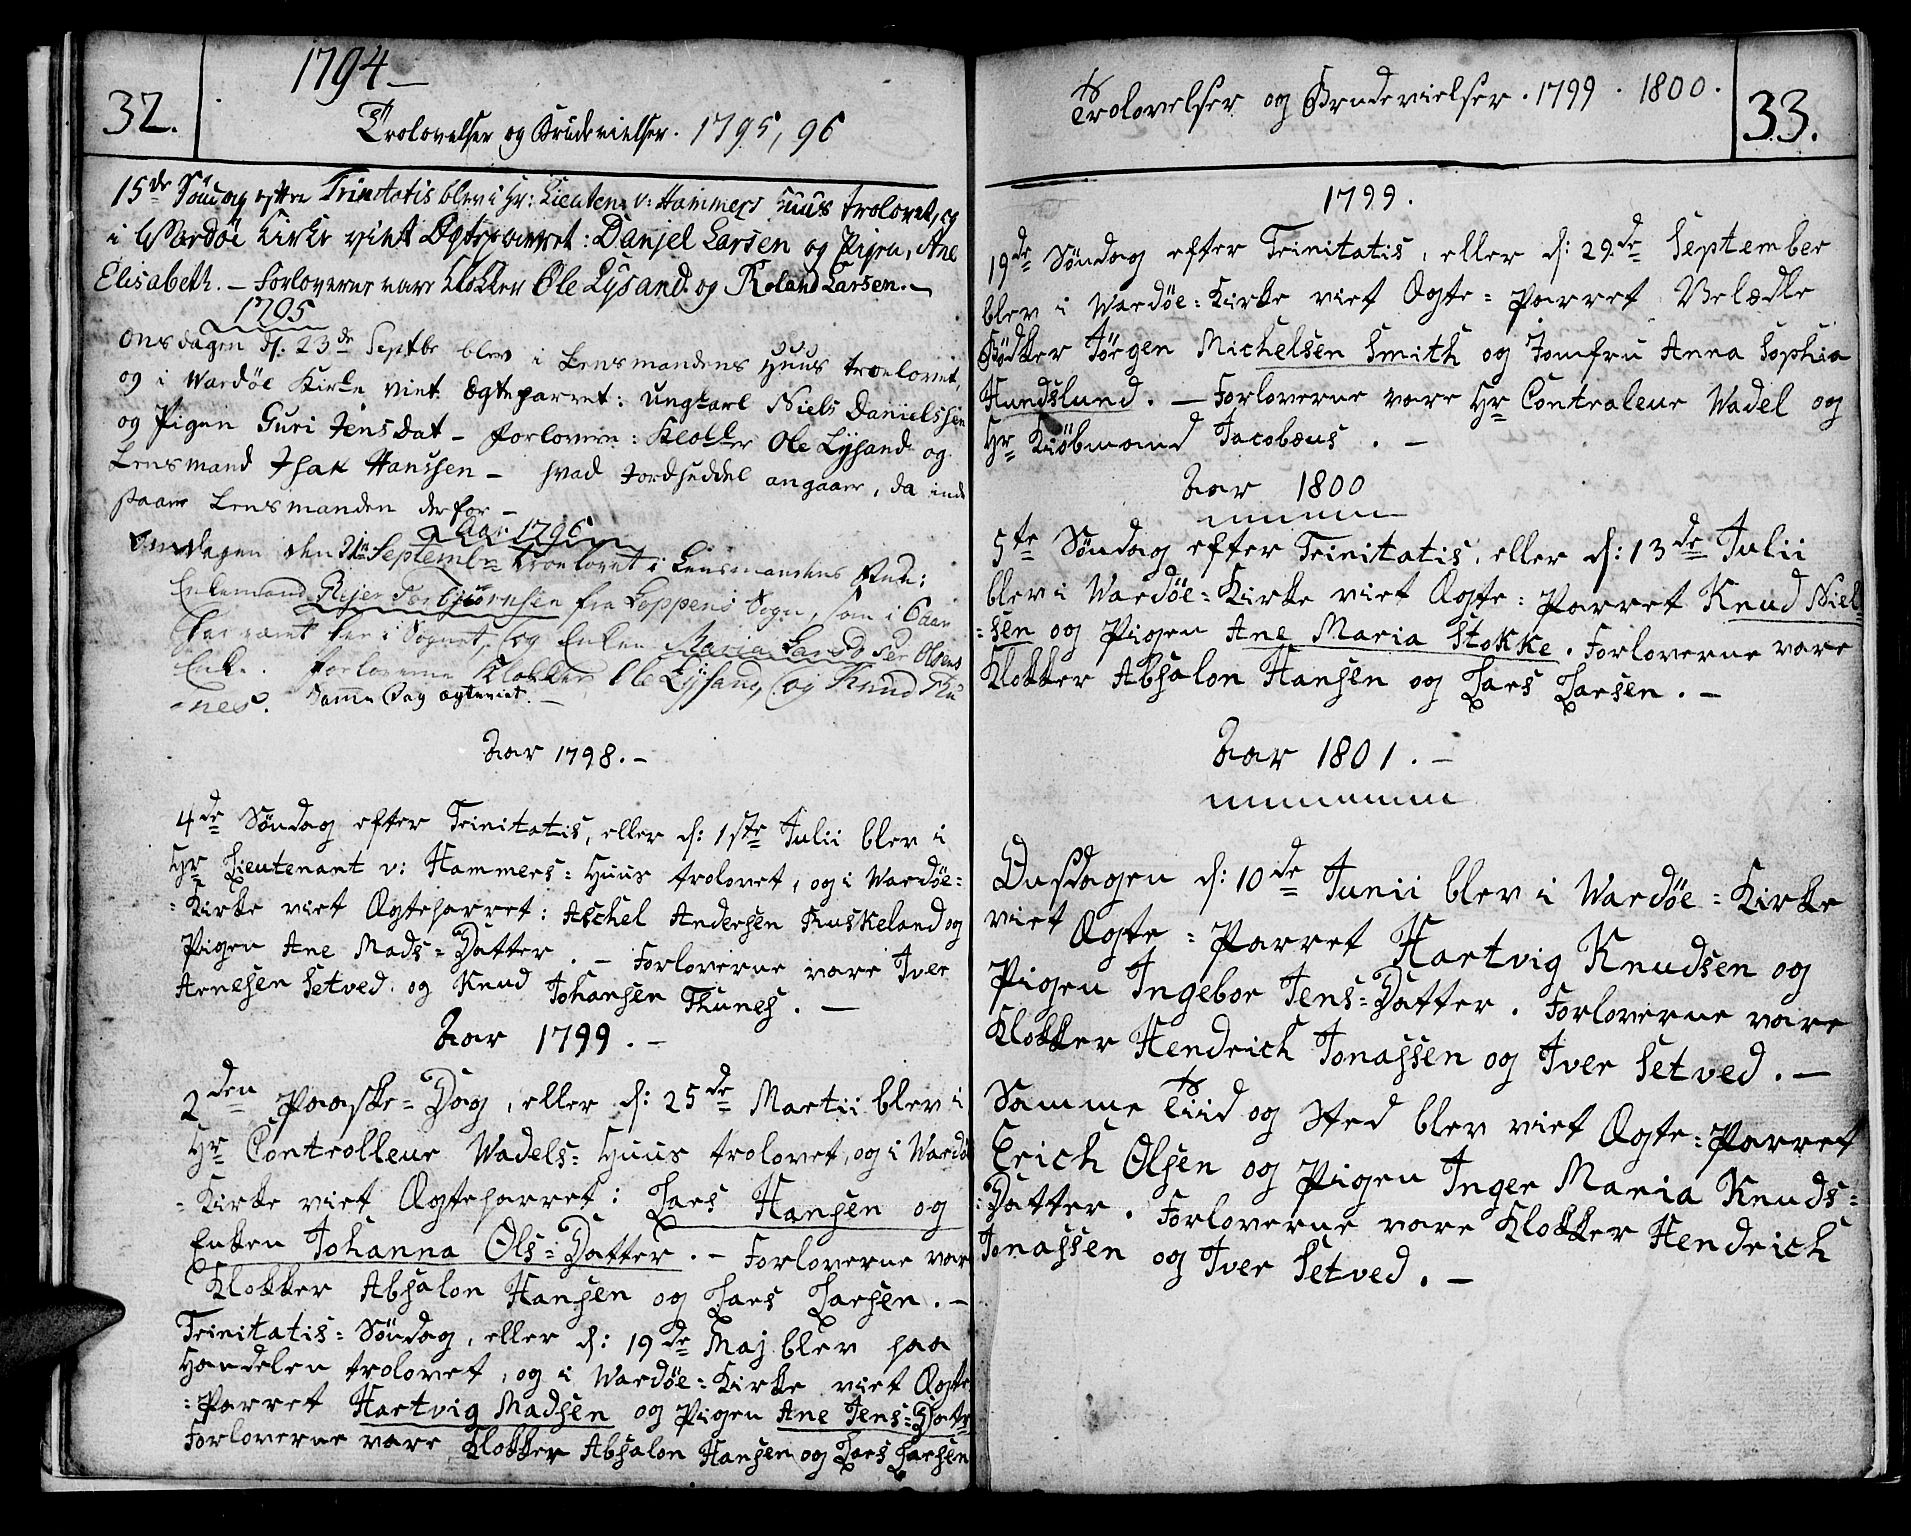 32.
1794 –
Trolovelser og Brudevielser. 1795, 96
15de Søndag efter Trinitatis blev i Hr: Lieuten: v: Hammers Huus trolovet, og
i Wardöe Kirke viet Ægteparret: Danjel Larsen og Pigen, Ane
Elisabeth. – Forloverne vare Klokker Ole Lÿsand og Roland Larsen. –
1795
Onsdagen d. 23de Septbr blev i Lensmandens Huus troelovet,
og i Wardöe Kirke viet Ægteparret: Ungkarl Niels Danielssen
og Pigen Guri JensDat – Forlovere: Klokker Ole Lÿsand og
Lensmand Isak Hanssen – hvad Jordseddel angaaer, da inde
staaer Lensmanden derfor –
Aar 1796
Onsdagen den 21de Septembr troelovet i Lensmandens
Enkemand Rejer Torbjörnsen fra Loppens Sogn, som i 6 aar
har været her i Sognet, og Enken Maria Per Olsens
Enke. Forloverne Klokker Ole Lÿsand, og Knud Thu
-nes. Samme Dag ægteviet. –
Aar 1798. –
4de Søndag efter Trinitatis, eller d: 1ste Julii blev i
Hr Lieutenant v: Hammers = Huus trolovet, og i Wardøe =
= Kirke viet Ægteparret: Aschel Andersen Ruskeland og
Pigen Ane Mads = Datter. – Forloverne vare Iver
Arnesen Setved og Knud Johansen Thunes. –
Aar 1799. –
2den Paaske = Dag, eller d: 25de Martii blev i
Hr Controlleur Wadels = Huus trolovet, og i Wardø
= Kirke viet Ægteparret: Lars Hansen og
Enken Johanna Ols = Datter. – Forloverne var
Klokker Absalon Hansen og Lars Larsen. –
Trinitatis = Søndag, eller d: 19de Maj blev paa
Handelen trolovet, og i Wardøe = Kirke viet Ægte
= Parret Hartvig Madsen og Pigen Ane Jens = Datr
Forloverne vare Klokker Absalon Hansen og Lars Larsen
Trolovelser og Brudevielser. 1799. 1800.
33.
1799.
19de Søndag efter Trinitatis, eller d: 29de September
blev i Wardøe = Kirke viet Ægte = Parret Velædle
Bødker Jørgen Michelsen Smith og Jomfru Anna Sophia
Hundslund. – Forloverne vare Hr Contraleur Wadel og
Hr Kiøbmand Jacobæus. –
Aar 1800
5te Søndag efter Trinitatis, eller d: 13de Julii
blev i Wardöe = Kirke viet Ægte = Parret Knud Niel-
= sen og Pigen Ane Maria Stokke. Forloverne vare
Klokker Absalon Hansen og Lars Larsen. –
Aar 1801. –
Onsdagen d: 10de Junii blev i Wardøe = Kirke
viet Ægte = Parret Hartvig Knudsen og
Pigen Ingebor Jens = Datter. Forloverne vare
Klokker Hendrich Jonassen og Iver Setved. –
Samme Tiid og Sted blev viet Ægte = Parret
Erich Olsen og Pigen Inger Maria Knuds =
= Datter. Forloverne vare Klokker Hendrich
Jonassen og Iver Setved. –